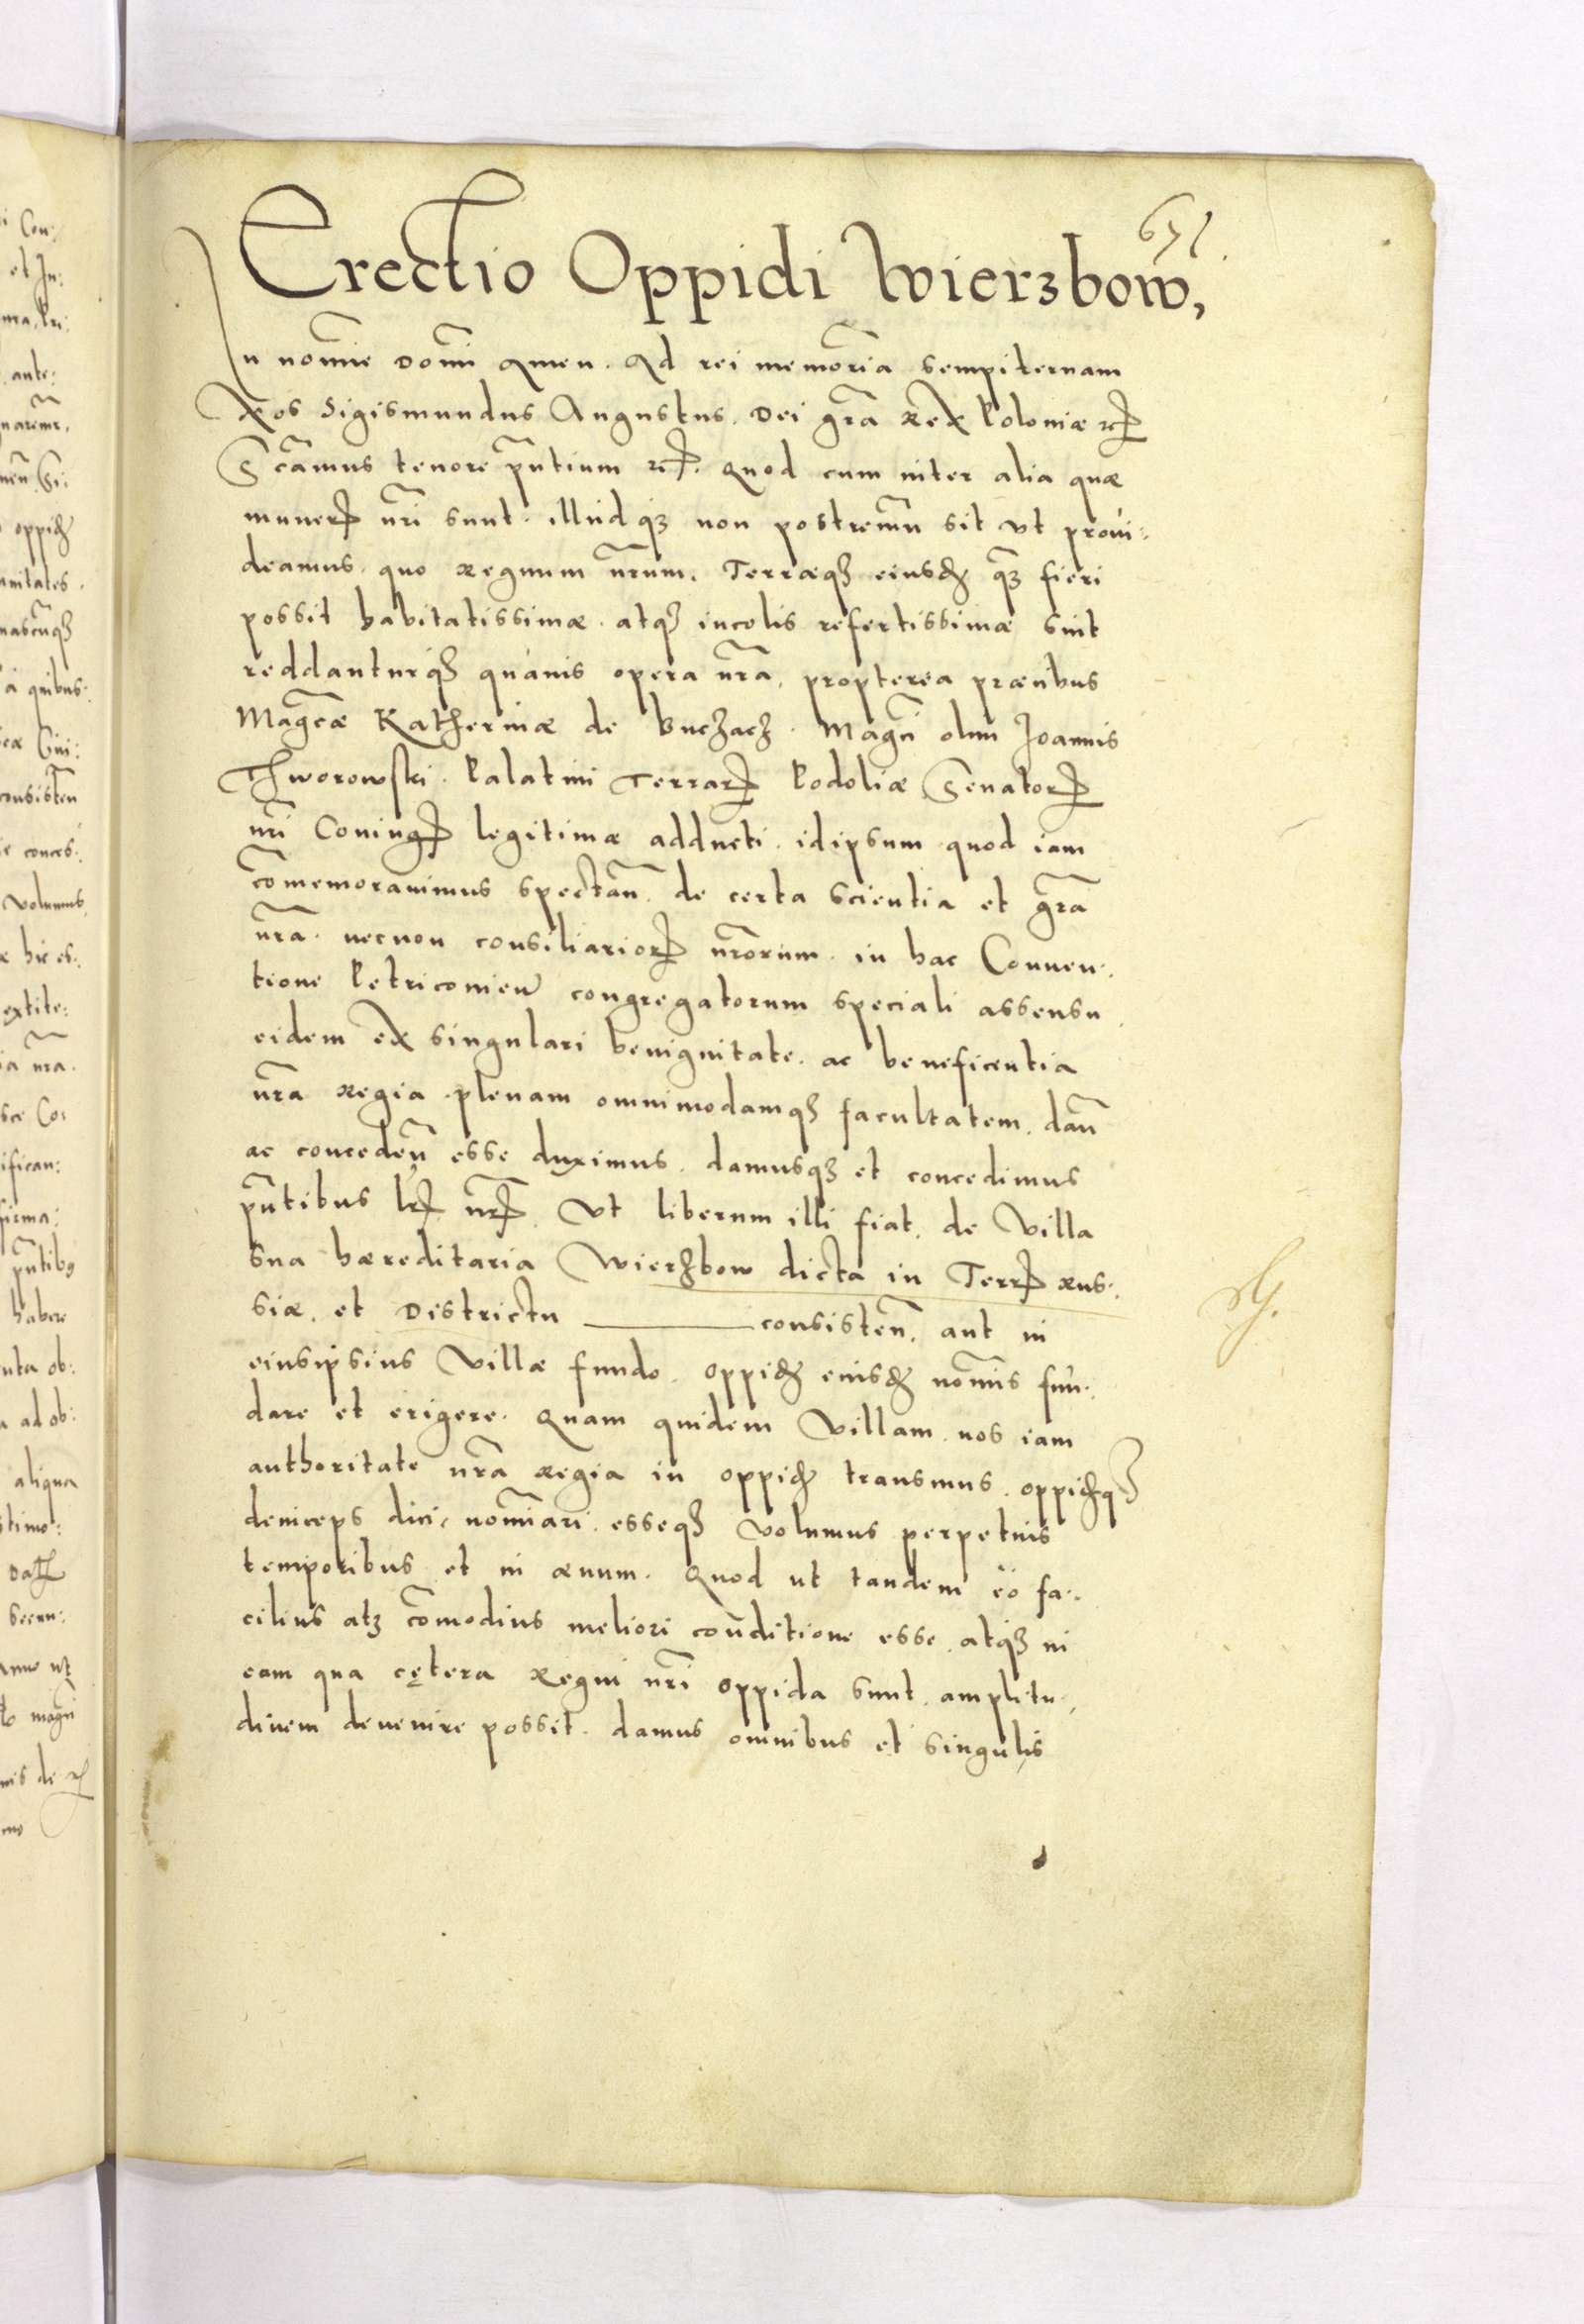 671
Erectio Oppidi Wierzbow,
In nomie Domi Amen. Ad rei memoria sempiternam
Nos Sigismundus Augustus. Dei gra Rex Poloniæ etc
S camus tenore pntium etc. Quod cum inter alia quæ
muneris nri sunt. illud q non postremu sit vt proui:
deamus. quo Regnum nrum. Terræq eiusd q fieri
possit habitatissimæ. atq incolis refertissimæ sint
reddanturq quauis opera nra, propterea præcibus
Magcæ Katherinæ de Buczacz. Magci olim Joannis
Thworowski. Palatini Terrar Podoliæ Senatoris
nri Coniugis legitimæ adducti. idipsum quod iam
comemorauimus spectan. de certa scientia et gra
nra. necnon consiliarior nrorum. in hac Conuen:
tione Petricouien congregatorum speciali assensu
eidem ex singulari benignitate. ac beneficentia
nra Regia. plenam omnimodamq facultatem. dan
ac conceden esse duximus. damusq et concedimus
pntibus lris nris. Vt liberum illi fiat. de Villa
sua hæreditaria Wierzbow dicta in Terris Rus:
siæ. et Districtu consisten. aut in
eiusipsius Villæ fundo. oppid eiusd nomis fun:
dare et erigere. Quam quidem Villam nos iam
authoritate nra Regia in oppid transmus. oppidq
deinceps dici, nomiari. esseq volumus perpetuis
temporibus et in æuum. Quod ut tandem eo fa:
cilius atq comodius meliori conditione esse. atq in
eam qua cętera Regni nri oppida sunt. amplitu:
dinem deuenire possit. damus omnibus et singulis